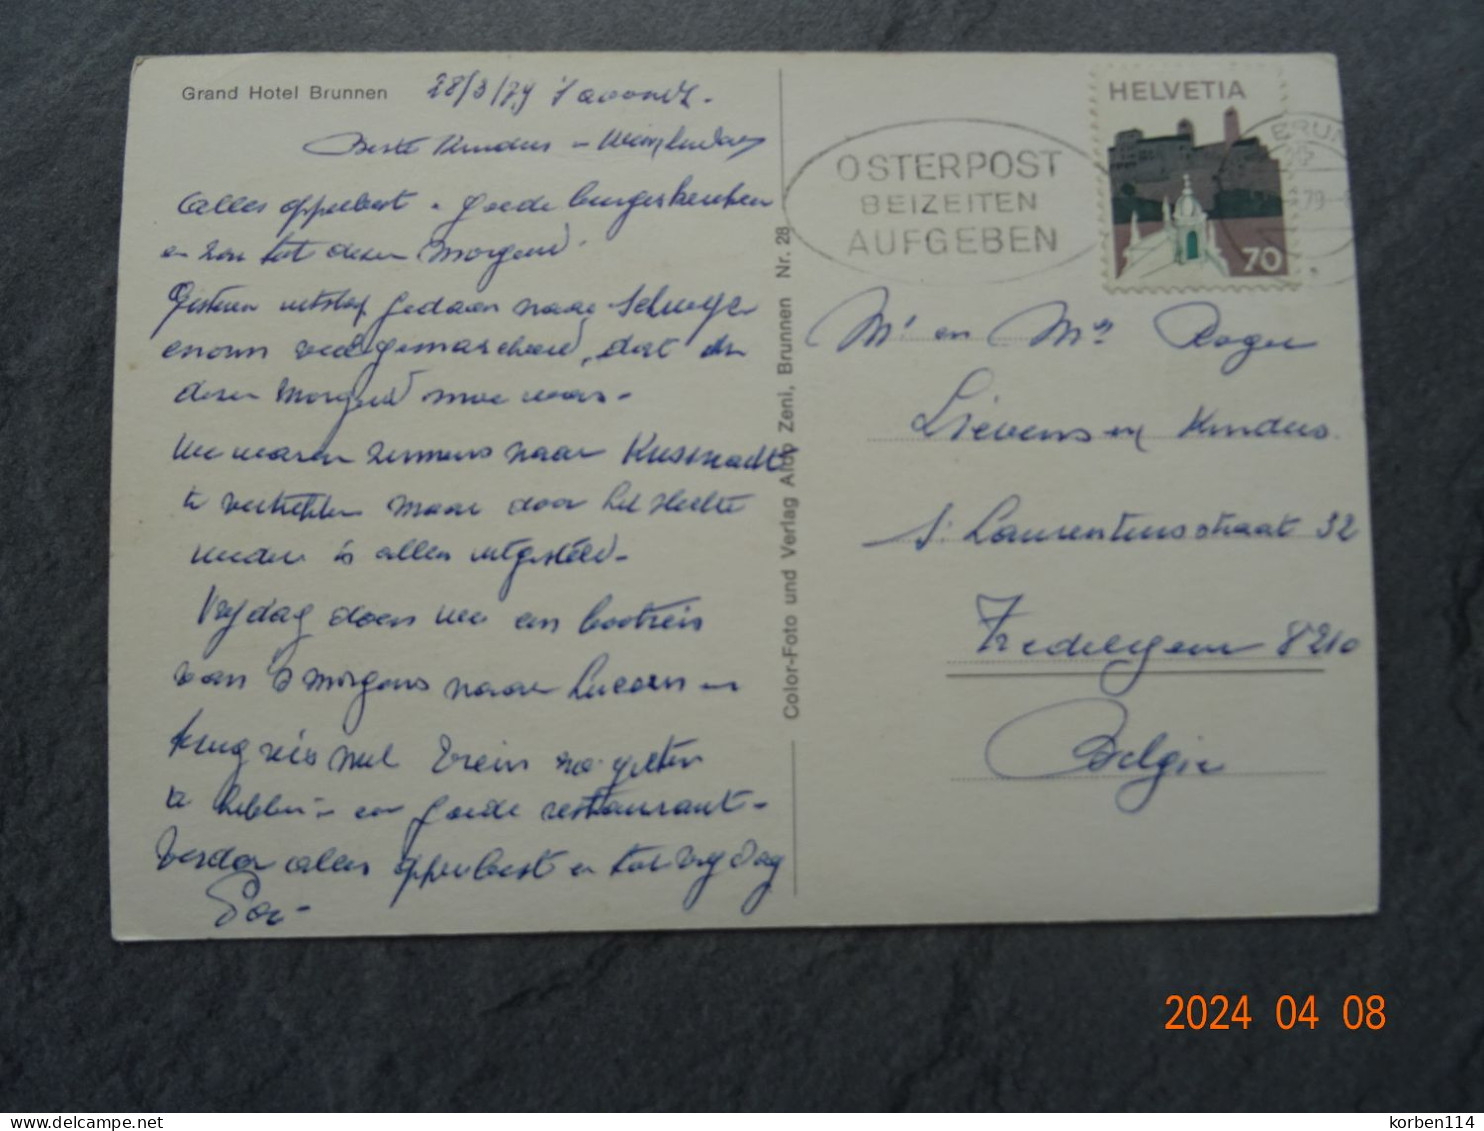 Grand Hotel Brunnen 28/3/79 's avonds.
Beste Kinders en
Alles opperbest - goede
en zon tot dezen Morgend.
Gisteren uitstap gedaan naar Schwyz
enorm veel gemarcheerd, dat
dezen Morgend moe was.
We waren zinnens naar Küssnacht
te vertrekken maar door het slechte
weder is alles uitgesteld.
Vrijdag doen we een bootreis
van 's morgens naar Luzern en
terug reis met trein na geten
te hebben in een goede restaurant.
Verder alles opperbest en tot vrijdag
Color-Foto und Verlag Aldo Zeni, Brunnen Nr. 28
HELVETIA
70
OSTERPOST
BEIZEITEN
AUFGEBEN
BRUN
79
Mr en Mw Roger
Lievens en Kinders
S. Laurentiusstraat 32
Zedelgem 8210
Belgie
2024 04 08
korben114